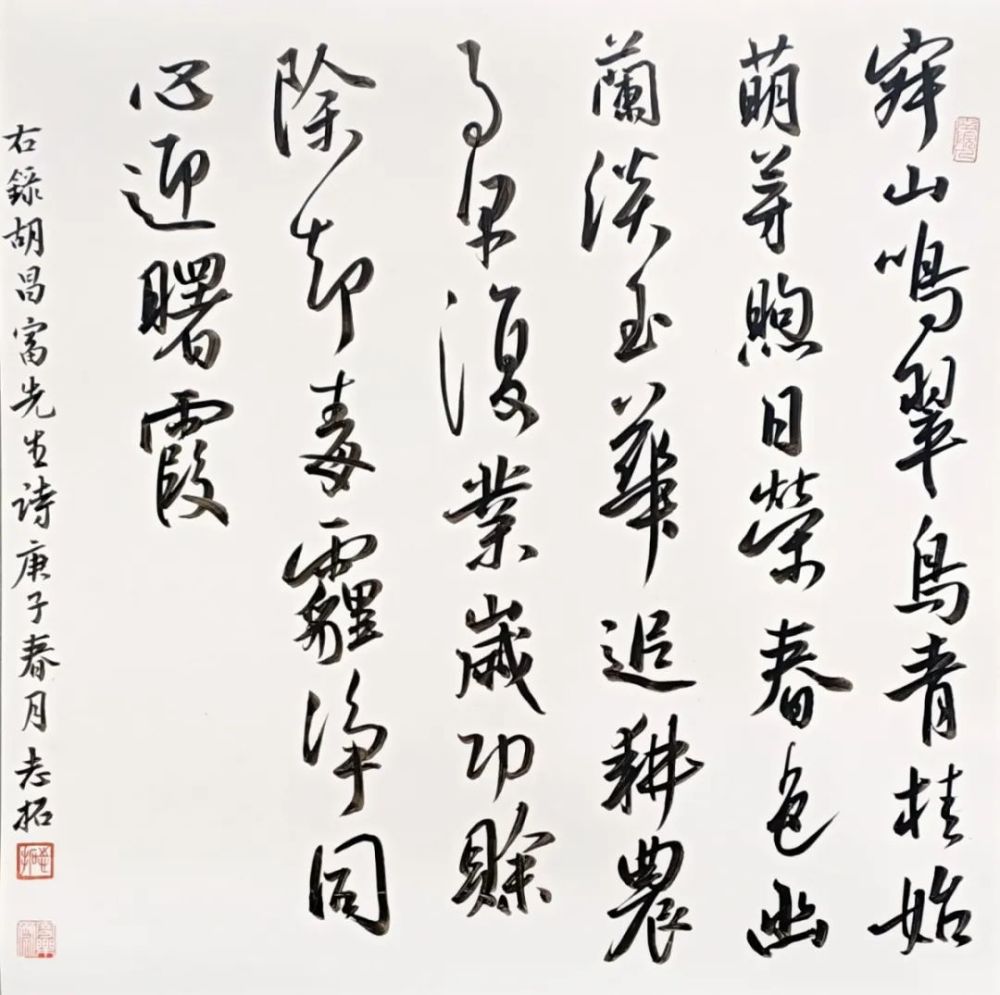 寂山鳴翠鳥青桂始
萌芽煦日榮春色幽
蘭淡玉華追耕農
事早復業歲功賒
除却毒霾淨同
心迎曙霞
右錄胡昌富先生詩庚子春月志拓